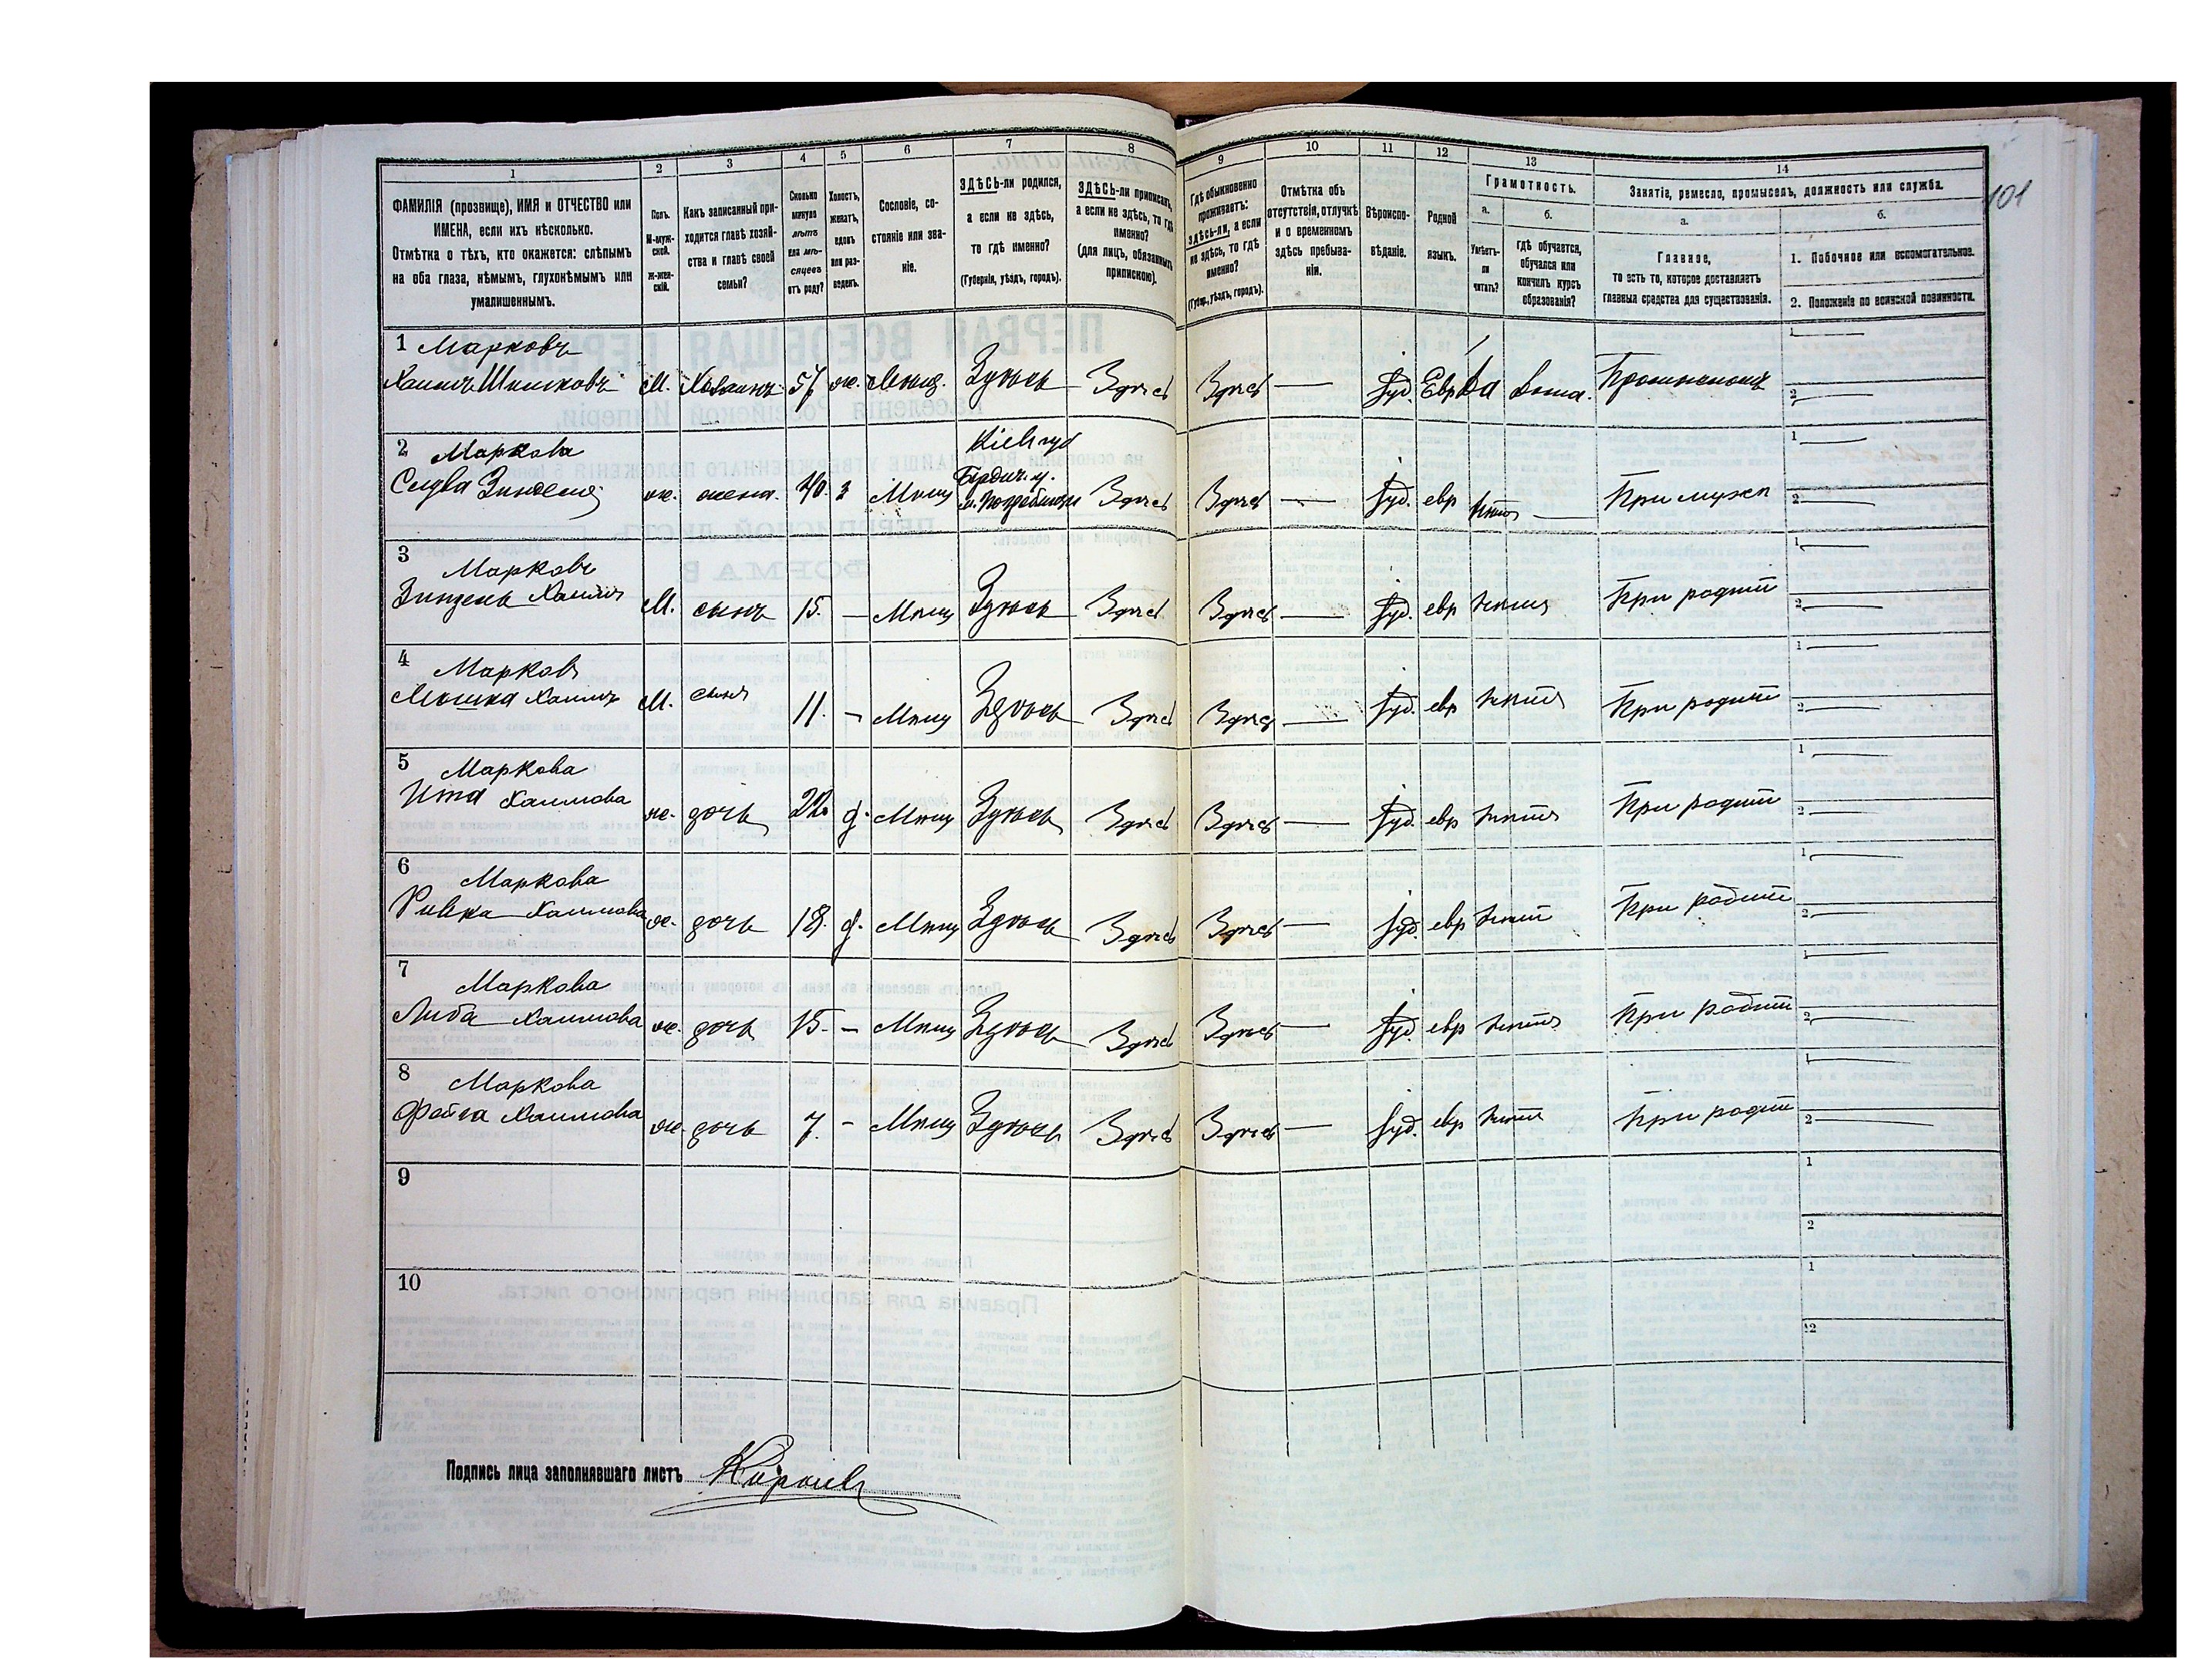 101
1 2 3 4 5 6 7 8 9 10 11 12 13 14
ФАМИЛІЯ (прозвище), ИМЯ и ОТЧЕСТВО или
ИМЕНА, если ихъ нѣсколько.
Отмѣтка о тѣхъ, кто окажется: слѣпымъ
на оба глаза, нѣмымъ, глухонѣмымъ или
умалишеннымъ.
Полъ.
М-муж-
ской.
ж-жен-
скій.
Какъ записанный при-
ходится главѣ хозяй-
ства и главѣ своей
семьи?
Сколько
минуло
лѣтъ
или мѣ-
сяцевъ
отъ роду?
Холостъ,
женатъ,
вдовъ
или раз-
веденъ.
Сословіе, со-
стояніе или зва-
ніе.
ЗДѢСЬ-ли родился,
а если не здѣсь,
то гдѣ именно?
(Губернія, уѣздъ, городъ).
ЗДѢСЬ-ли приписанъ,
а если не здѣсь, то гдѣ
именно?
(для лицъ, обязанныхъ
припискою).
Гдѣ обыкновенно
проживаетъ:
здѣсь-ли, а если
не здѣсь, то гдѣ
именно?
(Губер., уѣздъ, городъ).
Отмѣтка объ
отсутствіи, отлучкѣ
и о временномъ
здѣсь пребыва-
ніи.
Вѣроиспо-
вѣданіе.
Родной
языкъ.
Грамотность.
а.
Умѣетъ-
ли
читать?
б.
гдѣ обучается,
обучался или
кончилъ курсъ
образованія?
Занятіе, ремесло, промыселъ, должность или служба.
а.
Главное,
то есть то, которое доставляетъ
главныя средства для существованія.
б.
1. Побочное или вспомогательное.
2. Положеніе по воинской повинности.
1 Марковъ
Хаимъ М. Хозяинъ 57 ж. Мѣщ. Здѣсь Здѣсь Здѣсь — Іуд. Евр Да дома. 1 2
2 Маркова Кіев
Бердич. у.
ж. жена. 40. з Мѣщ Здѣсь Здѣсь — Іуд. евр При мужѣ 1 2
3 Марковъ
М. сынъ 15. — Мѣщ Здѣсь Здѣсь Здѣсь — Іуд. евр При родит 1 2
4 Марковъ
Мошка Хаимъ М. сынъ 11. — Мѣщ Здѣсь Здѣсь Здѣсь — Іуд. евр При родит 1 2
5 Маркова
Ита Хаимова ж. дочь 22 д. Мѣщ Здѣсь Здѣсь Здѣсь — Іуд. евр При родит 1 2
6 Маркова
Ривка Хаимова ж. дочь 18. д. Мѣщ Здѣсь Здѣсь Здѣсь — Іуд. евр При родит 1 2
7 Маркова
Либа Хаимова ж. дочь 15. — Мѣщ Здѣсь Здѣсь Здѣсь — Іуд. евр При родит 1 2
8 Маркова
Фейга Хаимова ж. дочь 7. — Мѣщ Здѣсь Здѣсь Здѣсь — Іуд. евр При родит 1 2
9 1 2
10 1 2
Подпись лица заполнявшаго листъ